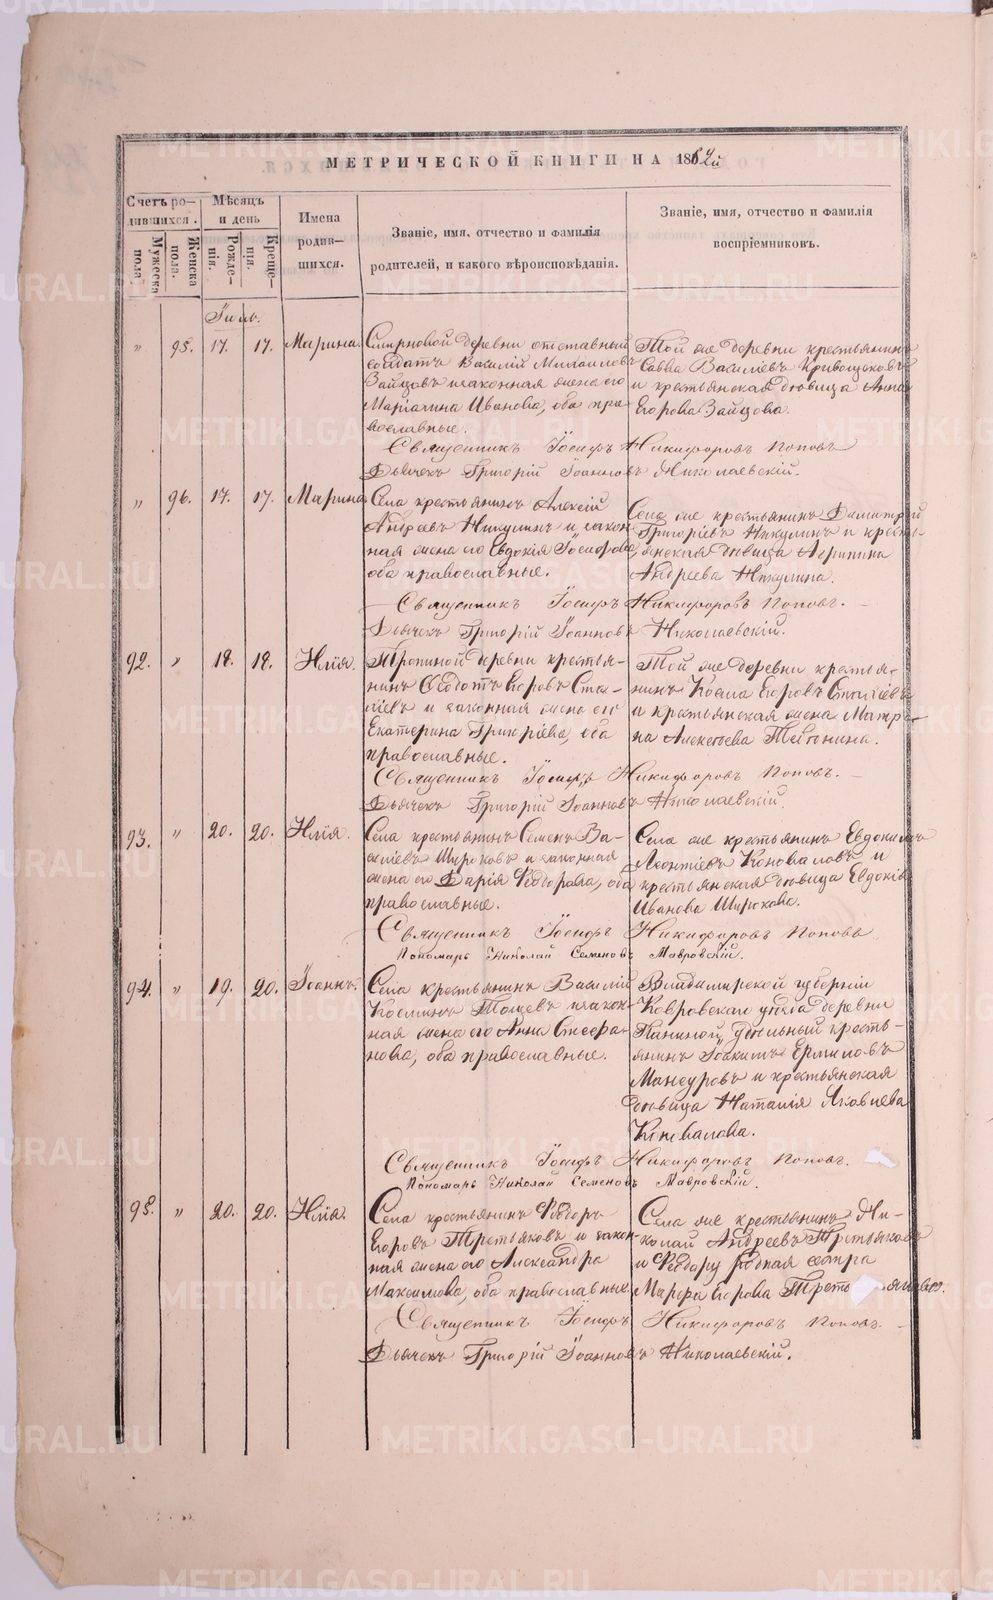 МЕТРИЧЕСКОЙ КНИГИ НА 1864й
Счетъ ро-
дившихся.
Мужеска
пола.
Женска
пола.
Мѣсяцъ
и день
Рожде-
нія.
Креще-
нія.
Имена
родив-
шихся.
Званіе, имя, отчество и фамилія
родителей, и какого вѣроисповѣданія.
Званіе, имя, отчество и фамилія
воспріемниковъ.
Іюль.
" 95. 17. 17. Марина.
Смирновой деревни отставный
солдатъ Василій Михаиловъ
Зайцовъ и законная жена его
Маріанна Иванова, оба пра-
вославные.
Той же деревни крестьянинъ
Савва Василіевъ Кривощековъ
и крестьянская дѣвица Анна
Егорова Зайцова.
Священникъ Іосифъ Никифоровъ Поповъ
Дьячекъ Григорій Іоанновъ Николаевскій.
" 96. 17. 17. Марина
Села крестьянинъ Алексій
Андреевъ Никулинъ и закон
ная жена его Евдокія Іосифова,
оба православные.
Села же крестьянинъ Димитрій
Григоріевъ Никулинъ и кресть-
янская дѣвица Агрипина
Андреева Никулина.
Священникъ Іосифъ Никифоровъ Поповъ.
Дьячекъ Григорій Іоанновъ Николаевскій.
92. " 18. 18. Илія.
Тропиной деревни крестья-
нинъ Ѳедотъ Егоровъ
и законная жена его
Екатерина Григоріева, оба
православные.
Той же деревни крестья-
нинъ Косма Егоровъ
и крестьянская жена Матре-
на Алексѣева
Священникъ Іосифъ Никифоровъ Поповъ.
Дьячекъ Григорій Іоанновъ Николаевскій.
93. " 20. 20. Илія.
Села крестьянинъ Семенъ Ва-
силіевъ Широковъ и законная
жена его Дарія Ѳедорова, оба
православные.
Села же крестьянинъ Евдокимъ
Леонтіевъ Коноваловъ и
крестьянская дѣвица Евдокія
Иванова Широкова.
Священникъ Іосифъ Никифоровъ Поповъ
Пономарь Николай Семеновъ Мавровскій.
94. " 19. 20. Іоаннъ.
Села крестьянинъ Василій
Косминъ и закон-
ная жена его Анна Стефа-
нова, оба православные.
Владимирской губерніи
Ковровскаго уѣзда деревни
Паниной, удѣльный кресть-
янинъ Іоакимъ Ермиловъ
Мансуровъ и крестьянская
дѣвица Наталія Яковлева
Коновалова.
Священникъ Іосифъ Никифоровъ Поповъ.
Пономарь Николай Семеновъ Мавровскій.
95. " 20. 20. Илія.
Села крестьянинъ Ѳедоръ
Егоровъ Третьяковъ и закон-
ная жена его Александра
Максимова, оба православные.
Села же крестьянинъ Ни-
колай Андреевъ Третьяковъ
и Ѳедору родная сестра
Марфа Егорова
Священникъ Іосифъ Никифоровъ Поповъ.
Дьячекъ Григорій Іоанновъ Николаевскій.
METRIKI.GASO-URAL.RU